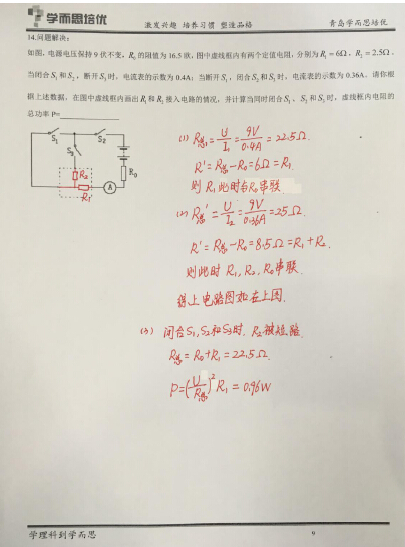 学而思培优
激发兴趣 培养习惯 塑造品格
青岛学而思培优
14.问题解决：
如图，电源电压保持9伏不变，R₀的阻值为16.5欧，图中虚线框内有两个定值电阻，分别为R₁=6Ω、R₂=2.5Ω。
当闭合S₁和S₂，断开S₃时，电流表的示数为0.4A；当断开S₁，闭合S₂和S₃时，电流表的示数为0.36A。请你根
据上述数据，在图中虚线框内画出R₁和R₂接入电路的情况，并计算当同时闭合S₁、S₂和S₃时，虚线框内电阻的
总功率P=
S₁ S₂
S₃
R₂
R₁ A R₀
(1) R总=U/I₁=9V/0.4A=22.5Ω.
R'=R总-R₀=6Ω=R₁.
则R₁此时与R₀串联
(2) R总'=U/I₂=9V/0.36A=25Ω.
R'=R总-R₀=8.5Ω=R₁+R₂.
则此时R₁,R₂,R₀串联.
综上电路图如左上图.
(3) 闭合S₁,S₂和S₃时.R₂被短路.
R总=R₀+R₁=22.5Ω.
P=(U/R总)²R₁=0.96W
学理科到学而思
9